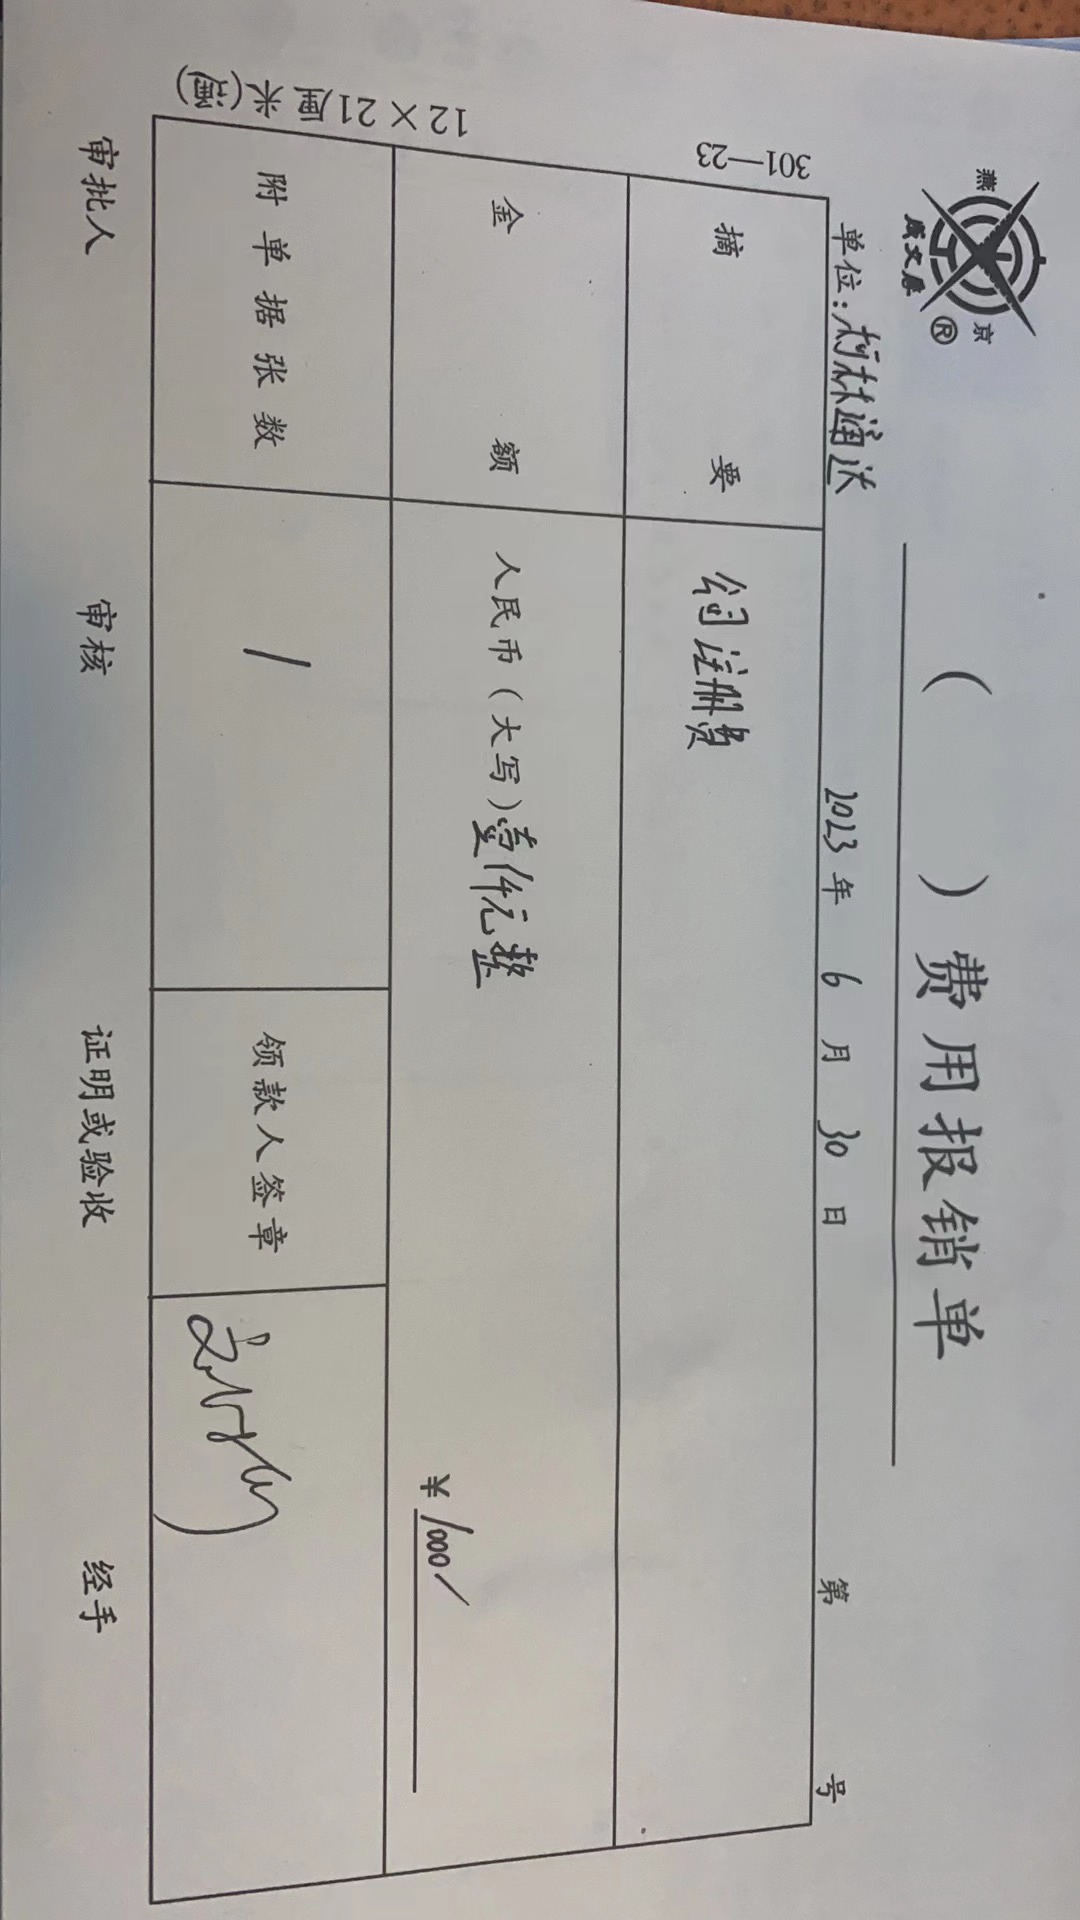 燕 京
®
( )费用报销单
单位:林通达
2023年 6 月 30 日 第 号
301—23
摘 要 公司注册费
金 额 人民币(大写)壹仟元整
¥ 1000/
附单据张数 / 领款人签章
审批人 审核 证明或验收 经手
12×21厘米(通)